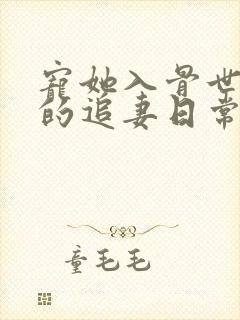 寵她入骨世
的追妻日常
童毛毛